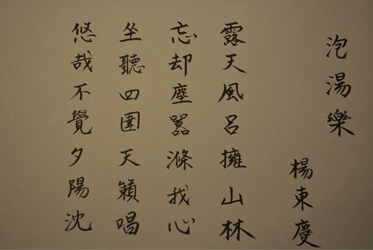 泡湯樂
楊東慶
露天風呂擁山林
忘却塵囂滌我心
坐聽四圍天籟唱
悠哉不覺夕陽沈